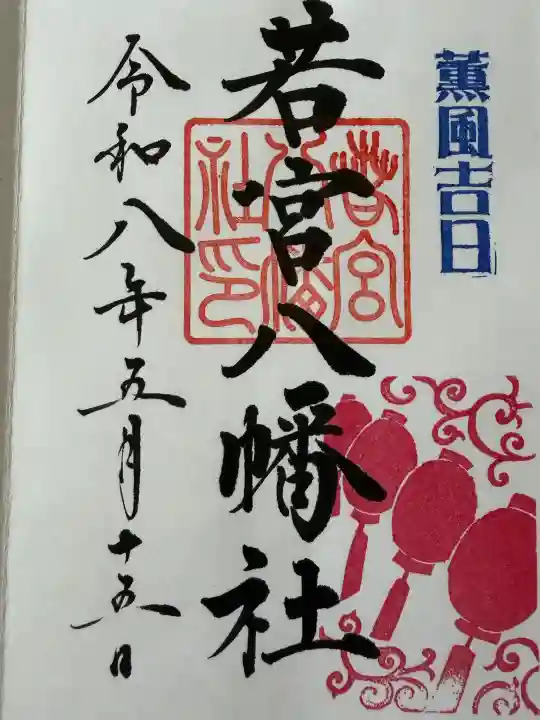 薫風吉日
若宮八幡社
若宮八幡社印
令和八年五月十五日